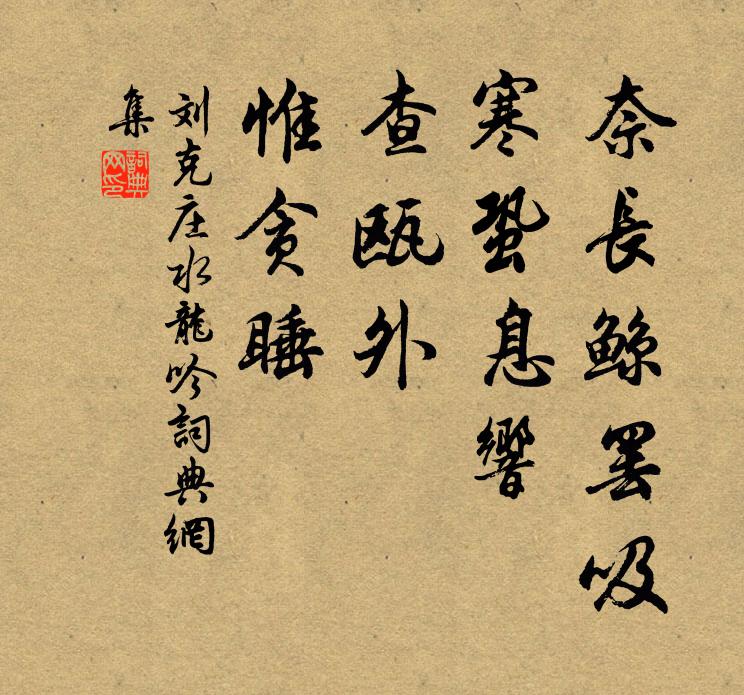 奈長鲸罢吸
寒蛩息響
查甌外
惟贪睡
刘克庄水龍吟詞典網
集
詞典網印